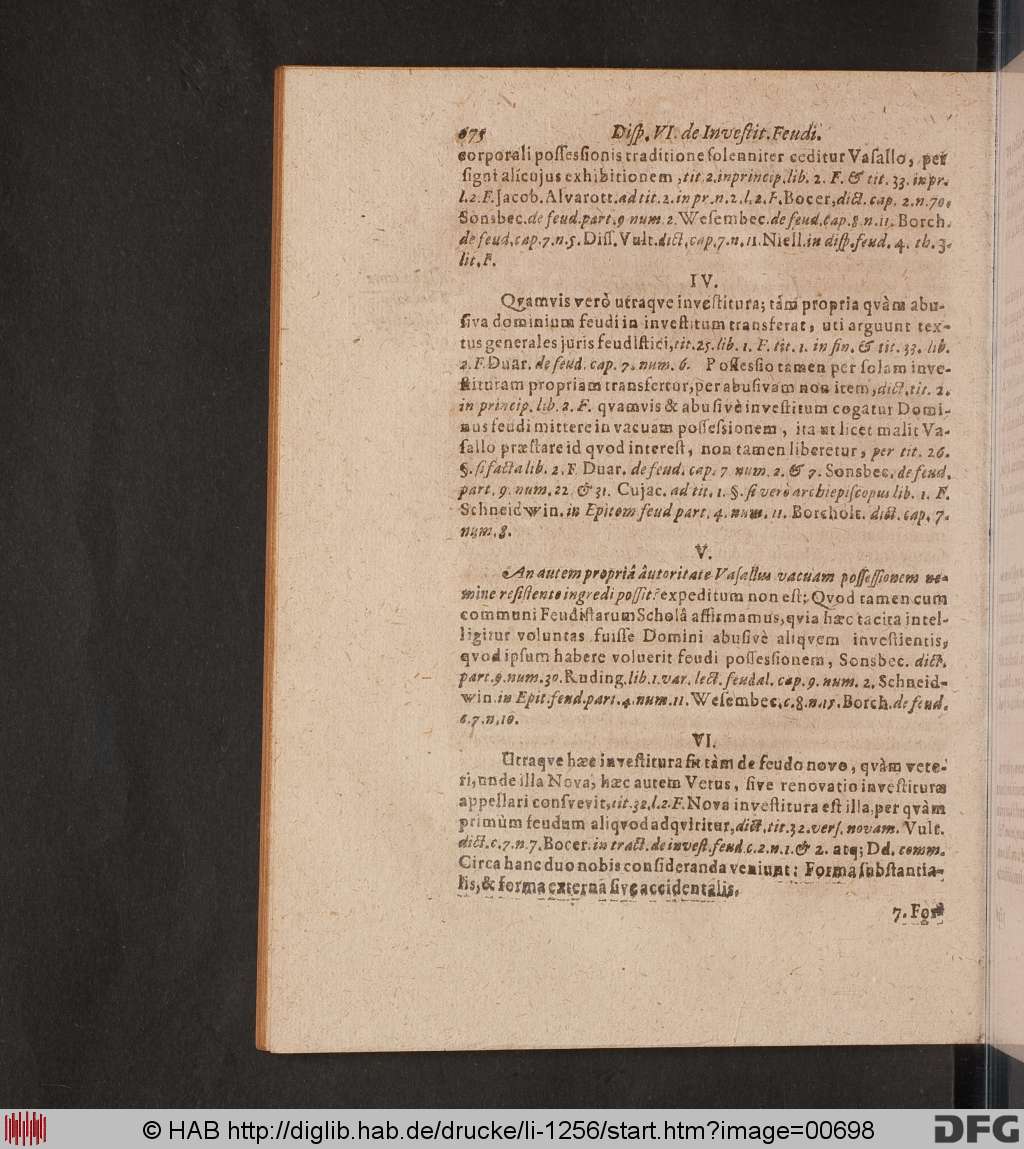 675 Disp. VI. de Investit. Feudi.
corporali possessionis traditione solenniter ceditur Vasallo, per
signi alicujus exhibitionem, tit. 2. in princip. lib. 2. F. & tit. 33. in pr.
l. 2. F. Jacob. Alvarott. ad tit. 2. in pr. n. 2. l. 2. F. Bocer, dict. cap. 2. n. 70.
Sonsbec. de feud. part. 9 num. 2. Wesembec. de feud. cap. 8. n. 11. Borch.
de feud. cap. 7. n. 5. Diss. Vult. dict. cap. 7. n. 11. Niell. in disp. feud. 4. th. 3.
lit. F.
IV.
Qvamvis verò utraqve investitura; tám propria qvàm abu-
siva dominium feudi in investitum transferat, uti arguunt tex-
tus generales juris feudistici, tit. 25. lib. 1. F. tit. 1. in fin. & tit. 33. lib.
2. F. Duar. de feud. cap. 7. num. 6. Possessio tamen per solam inve-
stituram propriam transfertur, per abusivam non item, dict. tit. 2.
in princip. lib. 2. F. qvamvis & abusivè investitum cogatur Domi-
nus feudi mittere in vacuam possessionem, ita ut licet malit Va-
sallo præstare id qvod interest, non tamen liberetur, per tit. 26.
§. si facta lib. 2. F. Duar. de feud. cap. 7 num. 2. & 7. Sonsbec. de feud.
part. 9. num. 22. & 31. Cujac. ad tit. 1. §. si verò archiepiscopus lib. 1. F.
Schneidwin. in Epitom feud part. 4. num. 11. Borcholt. dict. cap. 7.
num. 8.
V.
An autem propriâ âutoritate Vasallus vacuam possessionem ne-
mine resistente ingredi possit? expeditum non est; Qvod tamen cum
communi Feudistarum Scholâ affirmamus, qvia hæc tacita intel-
ligitur voluntas fuisse Domini abusivè aliqvem investientis,
qvod ipsum habere voluerit feudi possessionem, Sonsbec. dict.
part. 9. num. 30. Ruding. lib. 1. var. lect. feudal. cap. 9. num. 2. Schneid-
win. in Epit. feud. part. 4. num. 11. Wesembec. c. 8. n. 15. Borch. de feud.
c. 7. n. 10.
VI.
Utraqve hæc investitura fit tàm de feudo novo, qvàm vete-
ri, unde illa Nova, hæc autem Vetus, sive renovatio investituræ
appellari consvevit, tit. 32. l. 2. F. Nova investitura est illa, per qvàm
primùm feudum aliqvod adqviritur, dict. tit. 32. vers. novam. Vult.
dict. c. 7. n. 7. Bocer. in tract. de invest. feud. c. 2. n. 1. & 2. atq; Dd. comm.
Circa hanc duo nobis consideranda veniunt: Forma substantia-
lis, & forma externa sive accidentalis.
7. For-
© HAB http://diglib.hab.de/drucke/li-1256/start.htm?image=00698
DFG